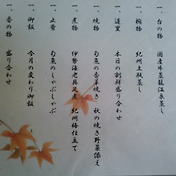 一、台の物 国産牛蒸籠温泉蒸し
一、椀物 紀州土瓶蒸し
一、造里 本日の創鮮盛り合わせ
一、焼物 旬魚の香草焼き 秋の焼き野菜添え
一、煮物 伊勢海老具足煮 紀州梅仕立て
一、止肴 旬魚のしゃぶしゃぶ
一、御飯 今月の変わり御飯
一、香の物 盛り合わせ